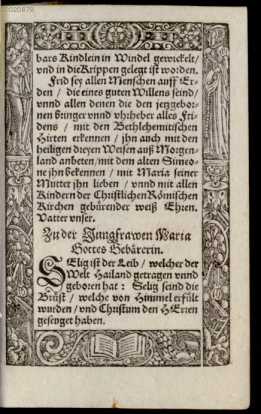 bars Kindlein in Windel gewickelt/
vnd in die Krippen gelegt ist worden.
Frid sey allen Menschen auff Er-
den / die eines guten Willens seind/
vnnd allen denen die den jetzgebor-
nen bringer vnnd vhrheber alles Fri-
dens / mit den Bethlehemitischen
Hirten erkennen / jhn auch mit den
heiligen dreyen Weisen auß Morgen-
land anbeten/ mit dem alten Simeo-
ne jhn bekennen / mit Maria seiner
Mutter jhn lieben / vnnd mit allen
Kindern der Christlichen Römischen
Kirchen gebürender weiß Ehren.
Vatter vnser.
Zu der Jungfrawen Maria
Gottes Gebärerin.
SElig ist der Leib / welcher der
Welt Hailand getragen vnnd
geboren hat : Selig seind die
Brüst / welche von Himmel erfült
wurden / vnd Christum den HErren
geseuget haben.